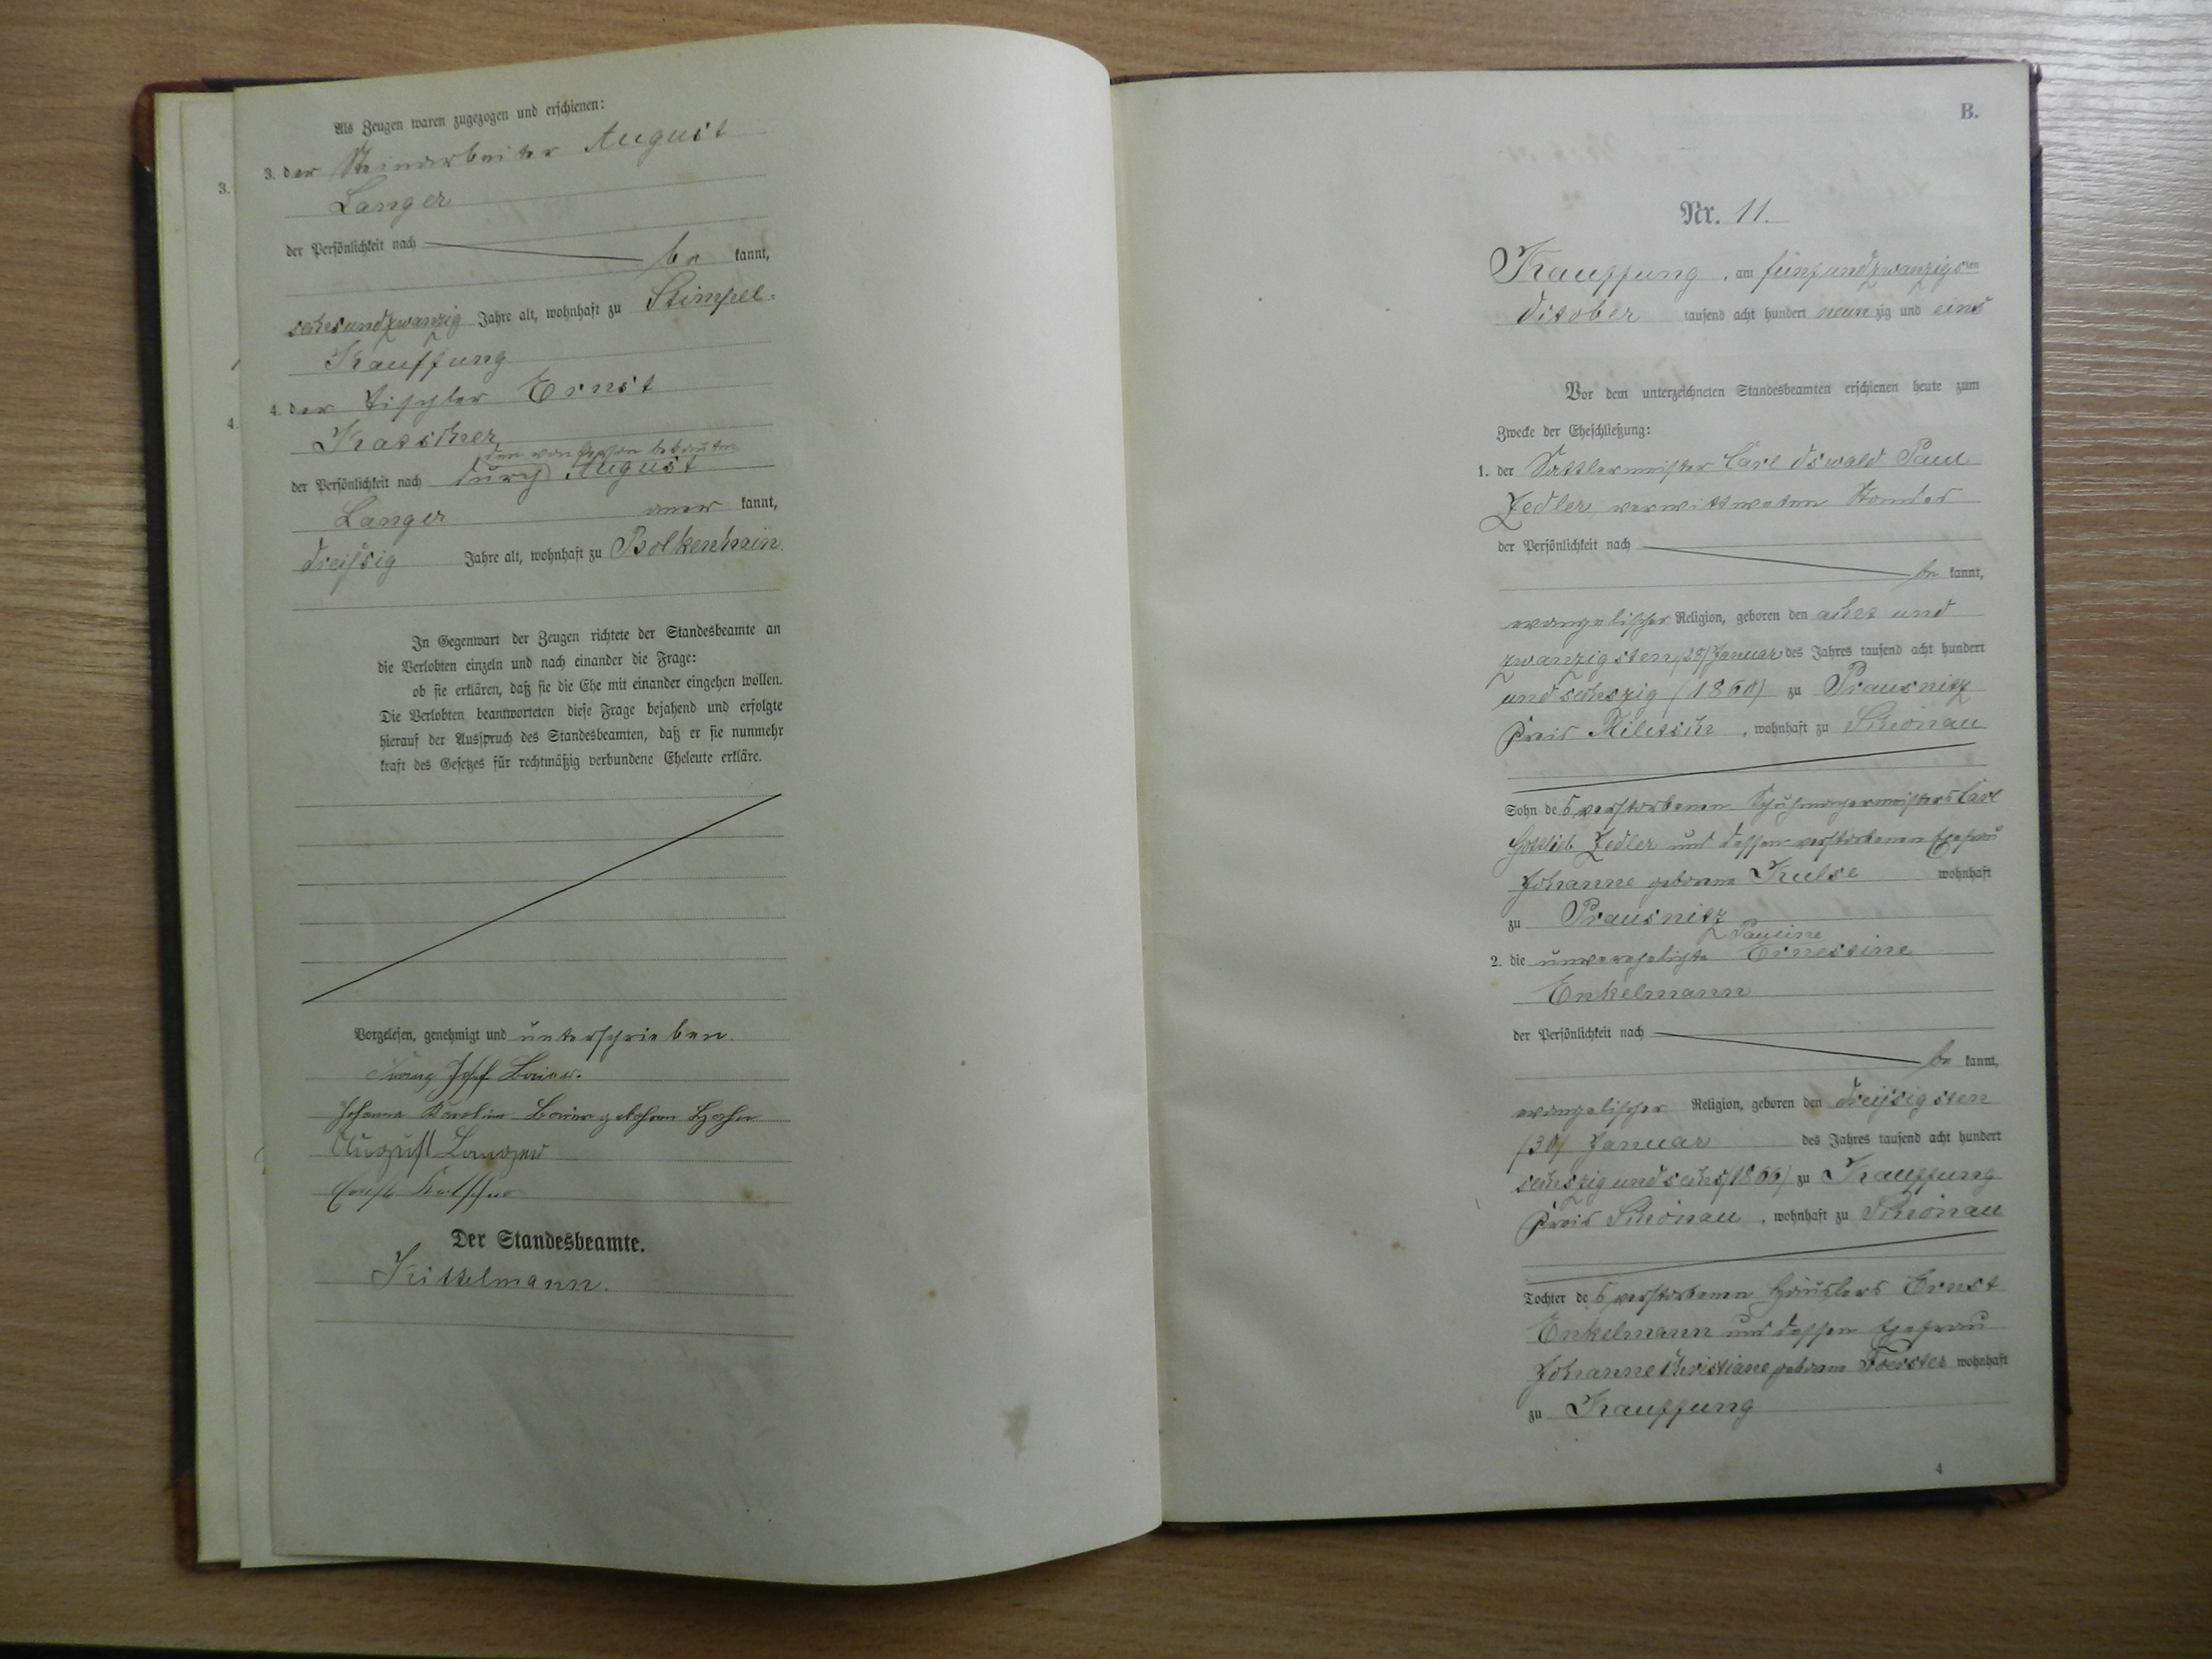 Als Zeugen waren zugezogen und erschienen:
3.
3. der Steinarbeiter August
Langer
der Persönlichkeit nach
be kannt,
sechsundzwanzig Jahre alt, wohnhaft zu Stimpel-
Kauffung
4.
4. der Tischler Ernst
Katschker,
den von Person bekannten
der Persönlichkeit nach durch August
Langer aner kannt,
dreißig Jahre alt, wohnhaft zu Bolkenhain.
In Gegenwart der Zeugen richtete der Standesbeamte an
die Verlobten einzeln und nach einander die Frage:
ob sie erklären, daß sie die Ehe mit einander eingehen wollen.
Die Verlobten beantworteten diese Frage bejahend und erfolgte
hierauf der Ausspruch des Standesbeamten, daß er sie nunmehr
kraft des Gesetzes für rechtmäßig verbundene Eheleute erkläre.
Vorgelesen, genehmigt und unterschrieben.
Josef
Johanna Karolina geborene
August Langer
Ernst
Der Standesbeamte.
Kittelmann.
B.
Nr. 11.
Kauffung, am fünfundzwanzigsten
October tausend acht hundert neunzig und eins
Vor dem unterzeichneten Standesbeamten erschienen heute zum
Zwecke der Eheschließung:
1. der Sattlermeister Carl Oswald Paul
Zedler, verwittweten Standes
der Persönlichkeit nach
be kannt,
evangelischer Religion, geboren den acht und
zwanzigsten (28) Januar des Jahres tausend acht hundert
und sechszig (1860) zu Prausnitz
Kreis Militsch, wohnhaft zu Schönau
Sohn des verstorbenen Schuhmachermeisters Carl
Gottlieb Zedler und dessen verstorbenen Ehefrau
Johanne geborene Kulse wohnhaft
zu Prausnitz
Pauline
2. die unverehelichte Ernestine
Enkelmann
der Persönlichkeit nach
be kannt,
evangelischer Religion, geboren den dreißigsten
(30) Januar des Jahres tausend acht hundert
sechszig und sechs (1866) zu Kauffung
Kreis Schönau, wohnhaft zu Schönau
Tochter des verstorbenen Häuslers Ernst
Enkelmann und dessen Ehefrau
Johanne Christiane geborene Foerster wohnhaft
zu Kauffung
4